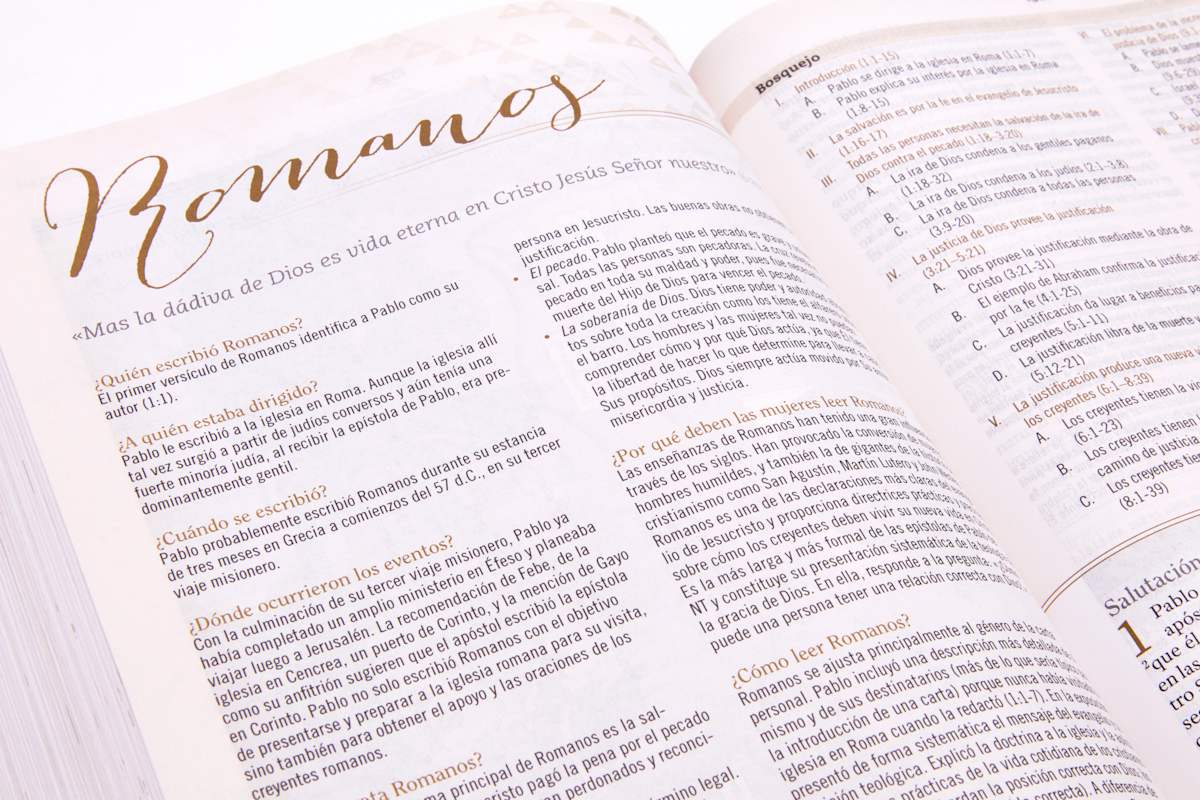 Romanos
«Mas la dádiva de Dios es vida eterna en Cristo Jesús Señor nuestro»
¿Quién escribió Romanos?
El primer versículo de Romanos identifica a Pablo como su
autor (1:1).
¿A quién estaba dirigido?
Pablo le escribió a la iglesia en Roma. Aunque la iglesia allí
tal vez surgió a partir de judíos conversos y aún tenía una
fuerte minoría judía, al recibir la epístola de Pablo, era pre-
dominantemente gentil.
¿Cuándo se escribió?
Pablo probablemente escribió Romanos durante su estancia
de tres meses en Grecia a comienzos del 57 d.C., en su tercer
viaje misionero.
¿Dónde ocurrieron los eventos?
Con la culminación de su tercer viaje misionero, Pablo ya
había completado un amplio ministerio en Éfeso y planeaba
viajar luego a Jerusalén. La recomendación de Febe, de la
iglesia en Cencrea, un puerto de Corinto, y la mención de Gayo
como su anfitrión sugieren que el apóstol escribió la epístola
en Corinto. Pablo no solo escribió Romanos con el objetivo
de presentarse y preparar a la iglesia romana para su visita,
sino también para obtener el apoyo y las oraciones de los
creyentes romanos.
ta Romanos?
ma principal de Romanos es la sal-
cristo pagó la pena por el pecado
an perdonados y reconci-
mino legal.
persona en Jesucristo. Las buenas obras no
justificación.
• El pecado. Pablo planteó que el pecado es grave y
sal. Todas las personas son pecadoras. La cruz
pecado en toda su maldad y poder, pues fue
muerte del Hijo de Dios para vencer el pecado.
• La soberanía de Dios. Dios tiene poder y autoridad
tos sobre toda la creación como los tiene el
el barro. Los hombres y las mujeres tal vez no
comprender cómo y por qué Dios actúa, ya que
la libertad de hacer lo que determine para llevar a
Sus propósitos. Dios siempre actúa movido por Su
misericordia y justicia.
¿Por qué deben las mujeres leer Romanos?
Las enseñanzas de Romanos han tenido una gran
través de los siglos. Han provocado la conversión de
hombres humildes, y también la de gigantes de la
cristianismo como San Agustín, Martín Lutero y John
Romanos es una de las declaraciones más claras del
lio de Jesucristo y proporciona directrices prácticas y
sobre cómo los creyentes deben vivir su nueva vida en
Es la más larga y más formal de las epístolas de Pablo
NT y constituye su presentación sistemática de la
la gracia de Dios. En ella, responde a la pregunta:
puede una persona tener una relación correcta con Dios
¿Cómo leer Romanos?
Romanos se ajusta principalmente al género de la carta
personal. Pablo incluyó una descripción más detallada de
mismo y de sus destinatarios (más de lo que sería
la introducción de una carta) porque nunca había
iglesia en Roma cuando la redactó (1:1-7). En la
presentó de forma sistemática el mensaje del evangelio
isión teológica. Explicó la doctrina a la iglesia y la
s prácticas de la vida cotidiana de los
rdan la posición correcta con Dios
correcta). A diferencia de
Bosquejo
I. Introducción (1:1-15)
A. Pablo se dirige a la iglesia en Roma (1:1-7)
B. Pablo explica su interés por la iglesia en Roma
(1:8-15)
II. La salvación es por la fe en el evangelio de Jesucristo
(1:16-17)
III. Todas las personas necesitan la salvación de la ira de
Dios contra el pecado (1:18–3:20)
A. La ira de Dios condena a los gentiles paganos
(1:18-32)
B. La ira de Dios condena a los judíos (2:1–3:8)
C. La ira de Dios condena a todas las personas
(3:9-20)
IV. La justicia de Dios provee la justificación
(3:21–5:21)
A. Dios provee la justificación mediante la obra de
Cristo (3:21-31)
B. El ejemplo de Abraham confirma la
por la fe (4:1-25)
C. La justificación da lugar a beneficios
creyentes (5:1-11)
D. La justificación libra de la muerte
(5:12-21)
V. La justificación produce una nueva
los creyentes (6:1–8:39)
A. Los creyentes tienen la
(6:1-23)
B. Los creyentes tienen
camino de justicia
C. Los creyentes
(8:1-39)
VI. El problema de la
justicia de Dios
A. Pablo se
B. Dios
C.
D.
Salutación
1 Pablo
após
2 que él
en las
tro